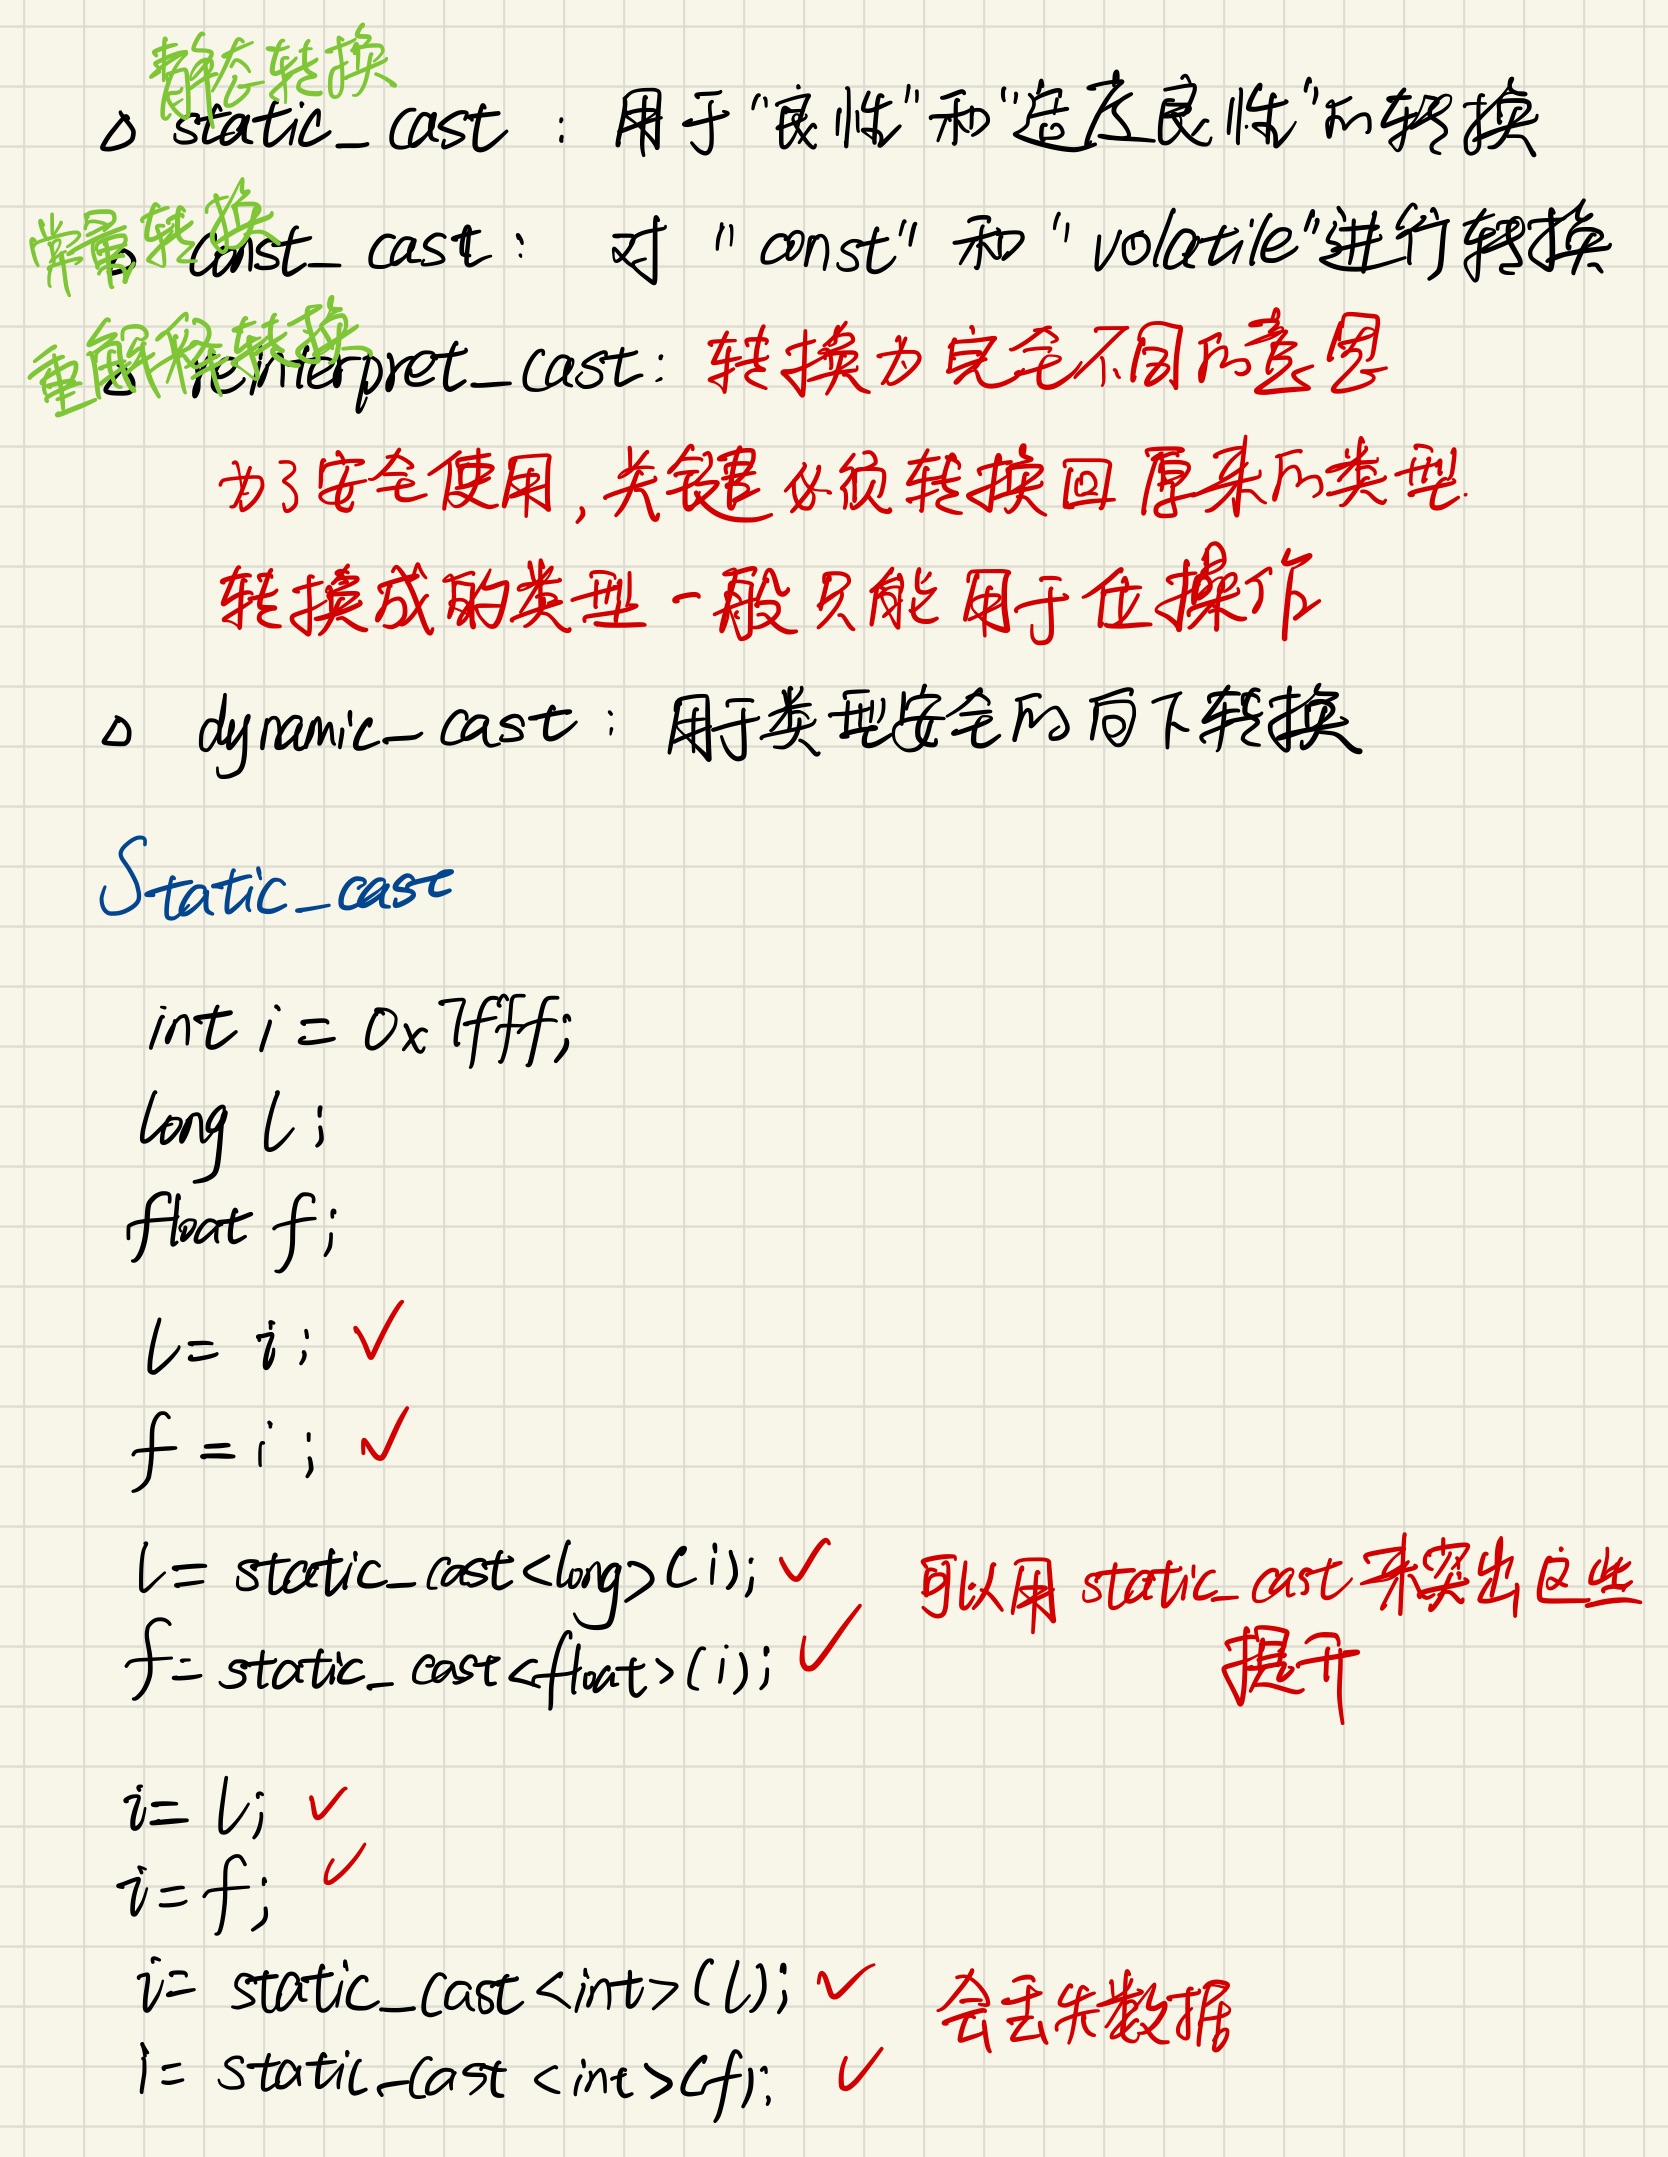 静态转换
△ static_cast : 用于"良性"和"适度良性"的转换
常量转换
△ const_cast: 对 "const" 和 "volatile"进行转换
重解释转换
△ reinterpret_cast: 转换为完全不同的意思
为了安全使用,关键必须转换回原来的类型.
转换成的类型一般只能用于位操作
△ dynamic_cast: 用于类型安全的向下转换
Static_cast
int i = 0x7fff;
long l;
float f;
l = i; ✓
f = i ; ✓
l = static_cast<long>(i); ✓ 可以用 static_cast 来突出这些
提升
f = static_cast<float>(i); ✓
i = l; ✓
i = f; ✓
i = static_cast<int>(l); ✓ 会丢失数据
i = static_cast<int>(f); ✓